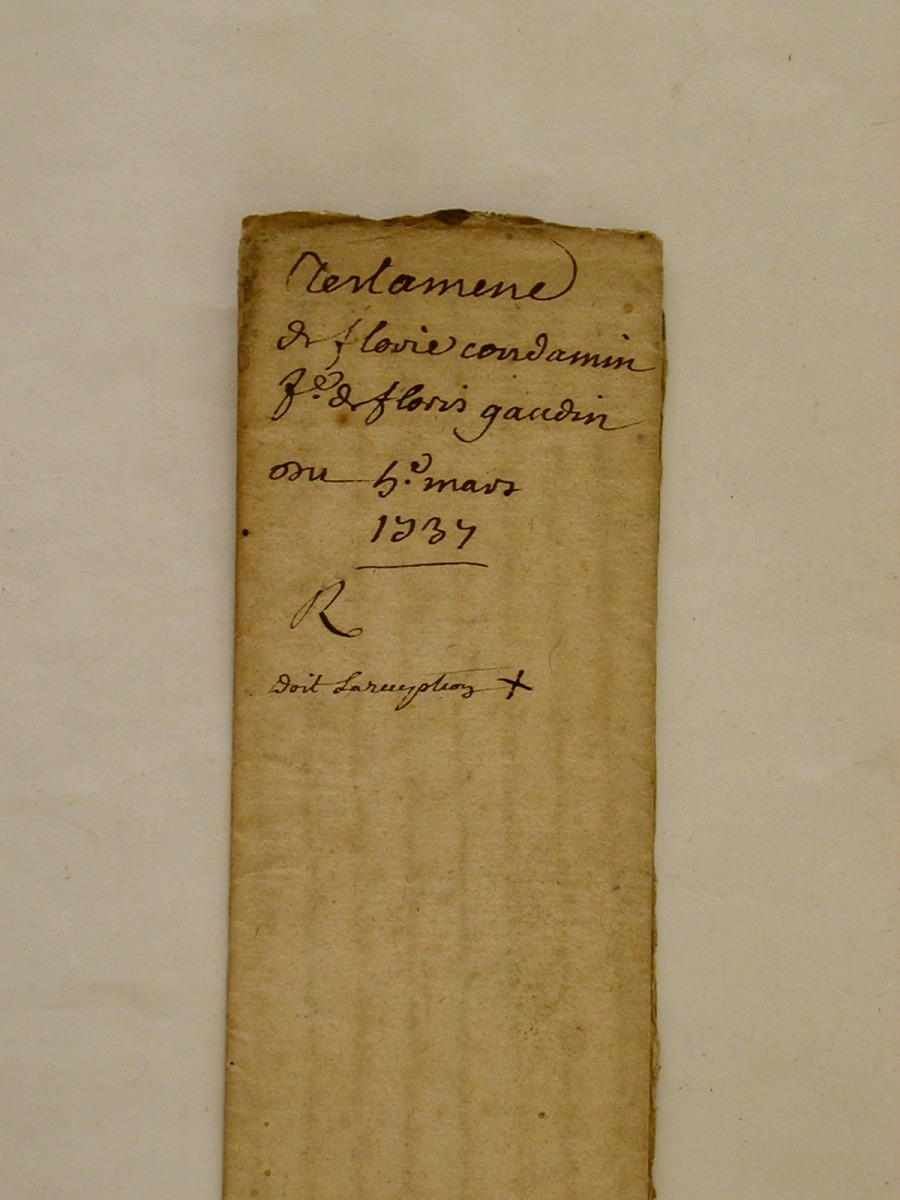 Testament
de florie condamin
fe. de floris gaudin
du 5e. mars
1737
R
doit Lareception +